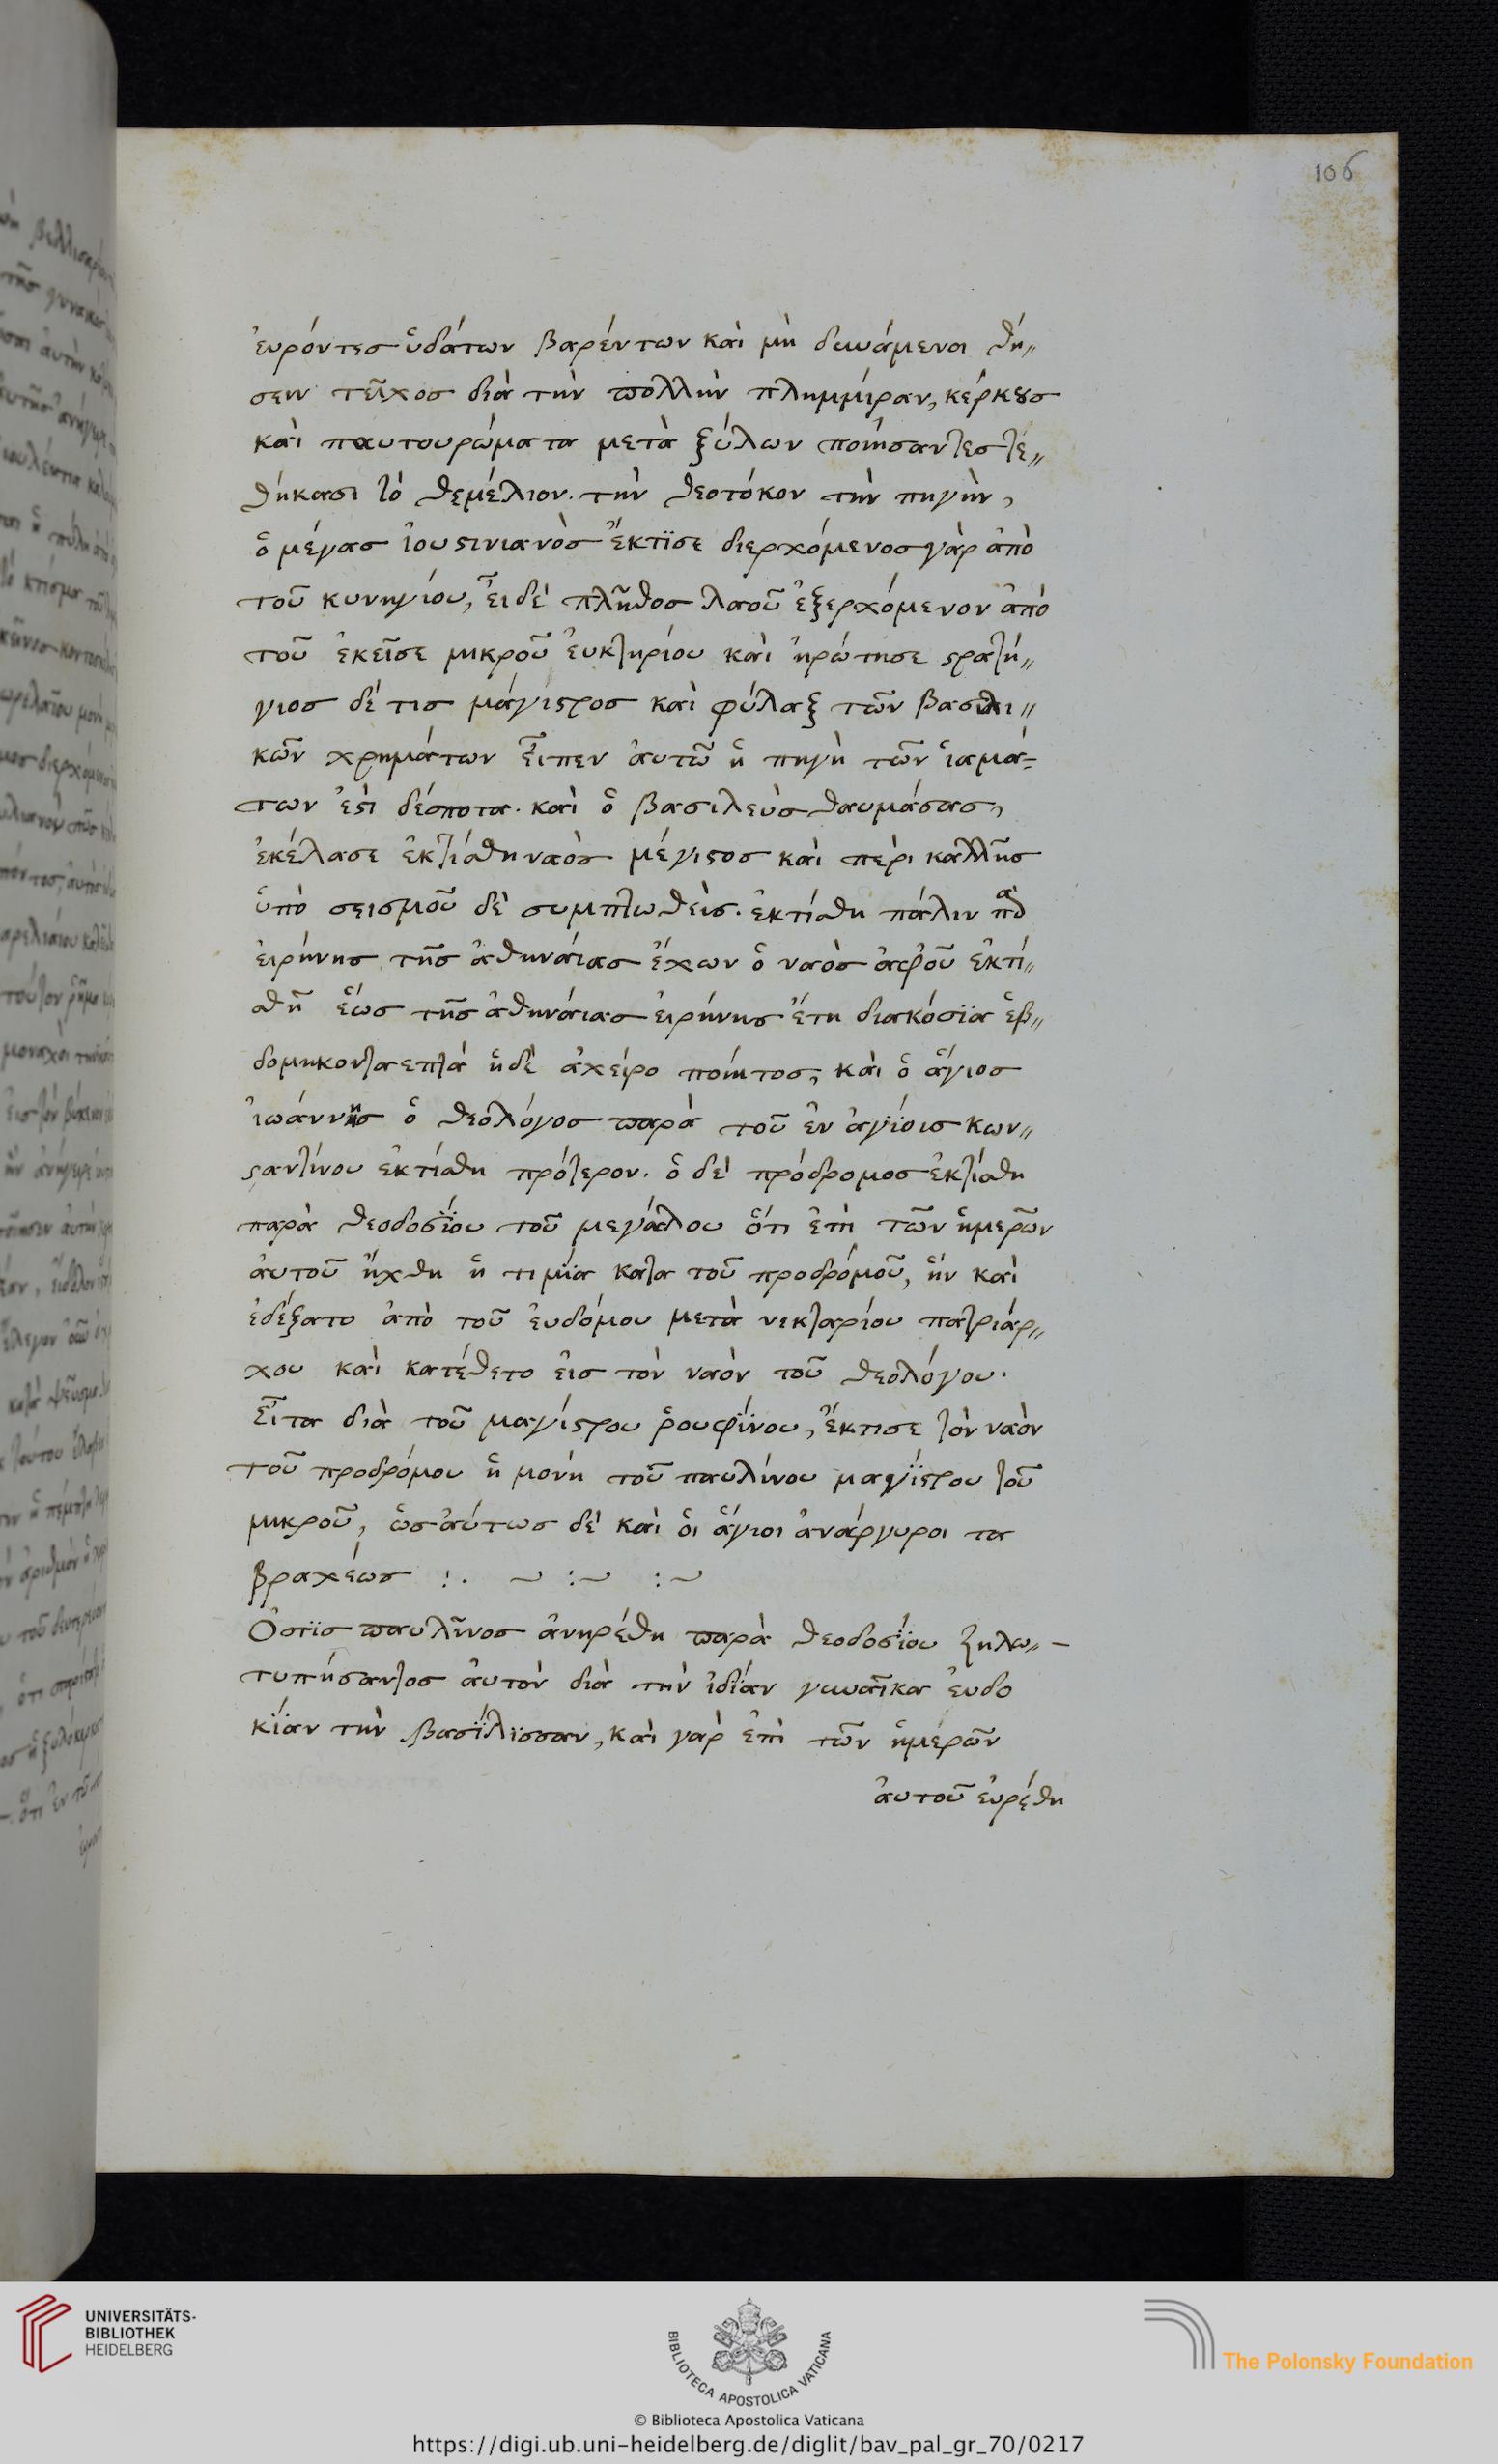 106
ἐυρόντες ὑδάτων βαρέντων καὶ μὴ δυνάμενοι θή〃
σειν τεῖχος διὰ τὴν πολλὴν πλημμίραν, κέρκους
καὶ παυτουρώματα μετὰ ξύλων ποιήσαντες τε〃
θήκασι τὸ θεμέλιον. τὴν θεοτόκον τὴν πηγὴν,
ὁ μέγας ἰουστινιανὸς ἔκτϊσε διερχόμενος γὰρ ἀπὸ
τοῦ κυνηγίου, εἶδὲ πλῆθος λαοῦ ἐξερχόμενον ἀπὸ
τοῦ ἐκεῖσε μικροῦ ἐυκτηρίου καὶ ἠρώτησε στρατή〃
γιος δέ τις μάγιστρος καὶ φύλαξ τῶν βασιλι〃
κῶν χρημάτων εἶπεν ἀυτῶ ἡ πηγὴ τῶν ἱαμά=
των ἐστι δέσποτα. καὶ ὁ βασιλεὺς θαυμάσας,
ἐκέλασε ἐκτίσθη ναὸς μέγιστος καὶ περι καλλῆς
ὑπὸ σεισμοῦ δὲ συμπτωθεὶς. ἐκτίσθη πάλιν πὰ
ἐιρήνης τῆς ἀθηνάιας ἔχων ὁ ναὸς ἀφοῦ ἐκτί〃
σθῆ ἕως τῆς ἀθηνάιας ἐιρήνης ἔτη διακόσϊα ἑβ〃
δομηκονταεπτὰ ἡδὲ ἀχείρο ποίητος, καὶ ὁ ἅγιος
ἰωάννης ὁ θεολόγος παρὰ τοῦ ἐν ἁγϊοις κων〃
σταντίνου ἐκτίσθη πρότερον. ὁ δὲ πρόδρομος ἐκτίσθη
παρὰ θεοδοσΐου τοῦ μεγάλου ὅτι ἐπὴ τῶν ἡμερῶν
ἀυτοῦ ἤχθη ἡ τιμϊα κατα τοῦ προδρόμοῦ, ἣν καὶ
ἐδέξατο ἀπὸ τοῦ ἐυδόμου μετὰ νεκταρίου πατριάρ〃
χου καὶ κατέθετο ἐις τὸν ναὸν τοῦ θεολόγου.
εἶτα διὰ τοῦ μαγίστρου ῥουφϊνου, ἔκτισε τὸν ναὸν
τοῦ προδρόμου ἡ μονὴ τοῦ παυλίνου μαγϊστρου τοῦ
μικροῦ, ὡσἀύτως δὲ καὶ ὁι ἅγιοι ἀνάργυροι τα
βραχέως :. ~ :~ :~
Ὅστϊς παυλῖνος ἀνηρέθη παρὰ θεοδοσΐου ζηλω〃–
τυπήσαντος ἀυτὸν διὰ τὴν ἰδίαν γυναῖκα ἐυδο
κΐαν τὴν βασΐλϊσσαν, καὶ γὰρ ἐπὶ τῶν ἡμέρῶν
ἀυτοῦ ἐυρέθη
UNIVERSITÄTS-
BIBLIOTHEK
HEIDELBERG
BIBLIOTECA APOSTOLICA VATICANA
The Polonsky Foundation
© Biblioteca Apostolica Vaticana
https://digi.ub.uni-heidelberg.de/diglit/bav_pal_gr_70/0217